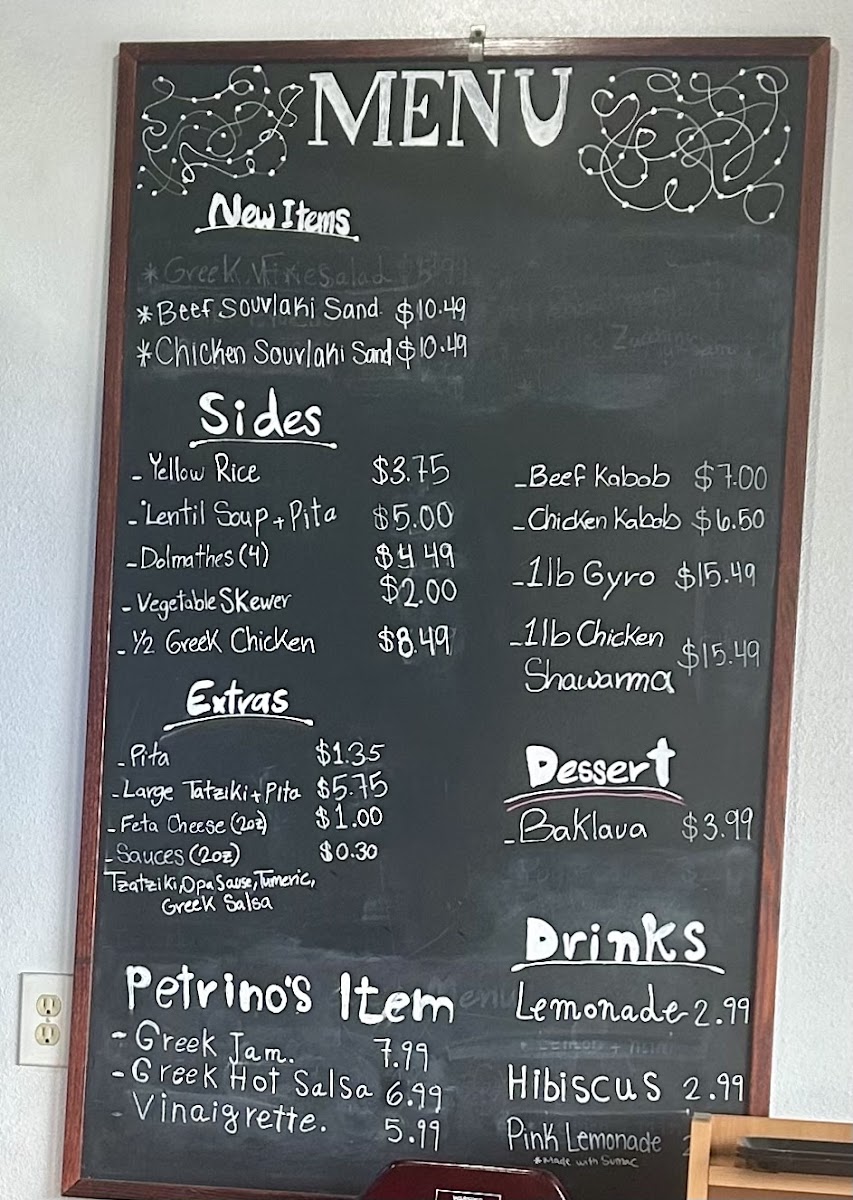 MENU
New Items
*Beef Souvlaki Sand $10.49
*Chicken Souvlaki Sand $10.49
Sides
- Yellow Rice $3.75
- Lentil Soup + Pita $5.00
- Dolmathes (4) $4.49
- Vegetable Skewer $2.00
- 1/2 Greek Chicken $8.49
- Beef Kabob $7.00
- Chicken Kabob $6.50
- 1lb Gyro $15.49
- 1lb Chicken
Shawarma $15.49
Extras
- Pita $1.35
- Large Tatziki + Pita $5.75
- Feta Cheese (2oz) $1.00
- Sauces (2oz) $0.30
Tzatziki, Opa Sause, Tumeric,
Greek Salsa
Dessert
- Baklava $3.99
Petrino's Item
- Greek Jam. 7.99
- Greek Hot Salsa 6.99
- Vinaigrette. 5.99
Drinks
Lemonade 2.99
Hibiscus 2.99
Pink Lemonade
*Made with Sumac